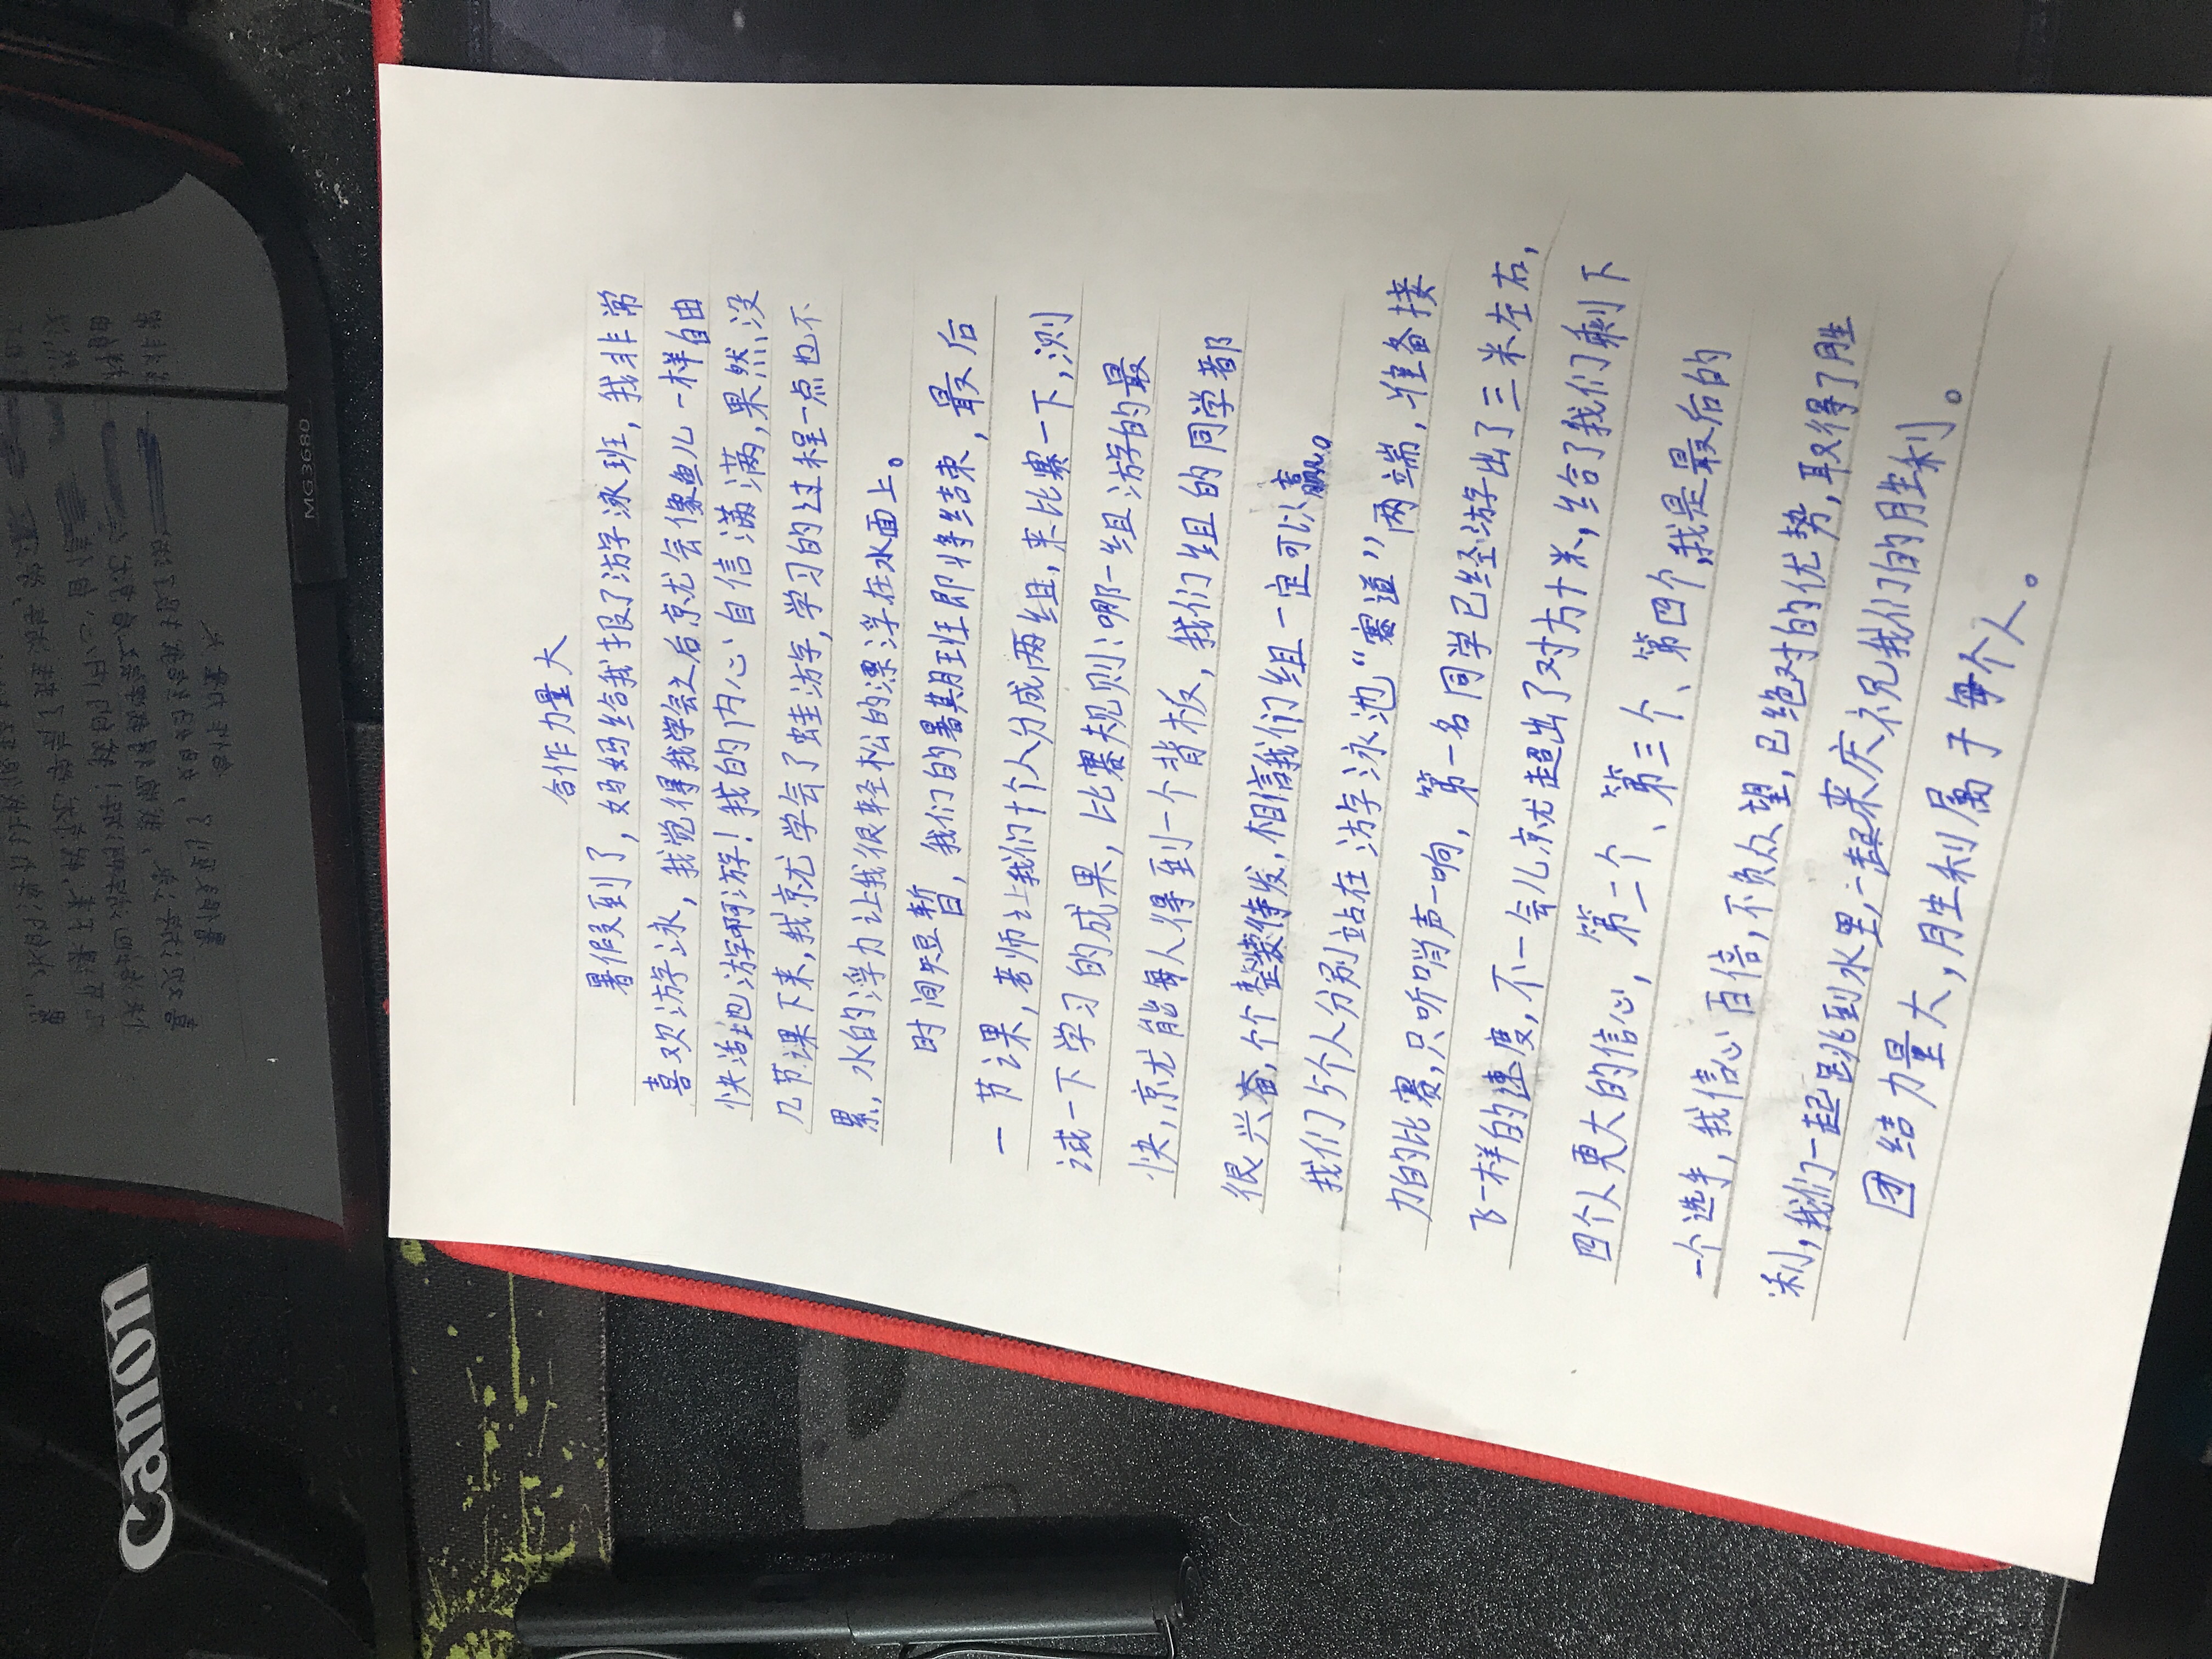 合作力量大
暑假到了，妈妈给我报了游泳班，我非常
喜欢游泳，我觉得我学会之后就会像鱼儿一样自由
快活地游啊游！我的内心自信满满，果然，没
几节课下来，我就学会了蛙游，学习的过程一点也不
累，水的浮力让我很轻松的漂浮在水面上。
时间短暂，我们的暑期班即将结束，最后
一节课，老师让我们十个人分成两组，来比赛一下，测
试一下学习的成果，比赛规则：哪一组游的最
快，就能每人得到一个背板，我们组的同学都
很兴奋，个个整装待发，相信我们组一定可以赢。
我们5个人分别站在游泳池“赛道”两端，准备接
力的比赛，只听哨声一响，第一名同学已经游出了三米左右，
飞一样的速度，不一会儿就超出了对方十米，给了我们剩下
四个人更大的信心，第二个、第三个、第四个，我是最后的
一个选手，我信心百倍，不负众望，已绝对的优势，取得了胜
利，我们一起跳到水里，一起来庆祝我们的胜利。
团结力量大，胜利属于每个人。
Canon
MG3680